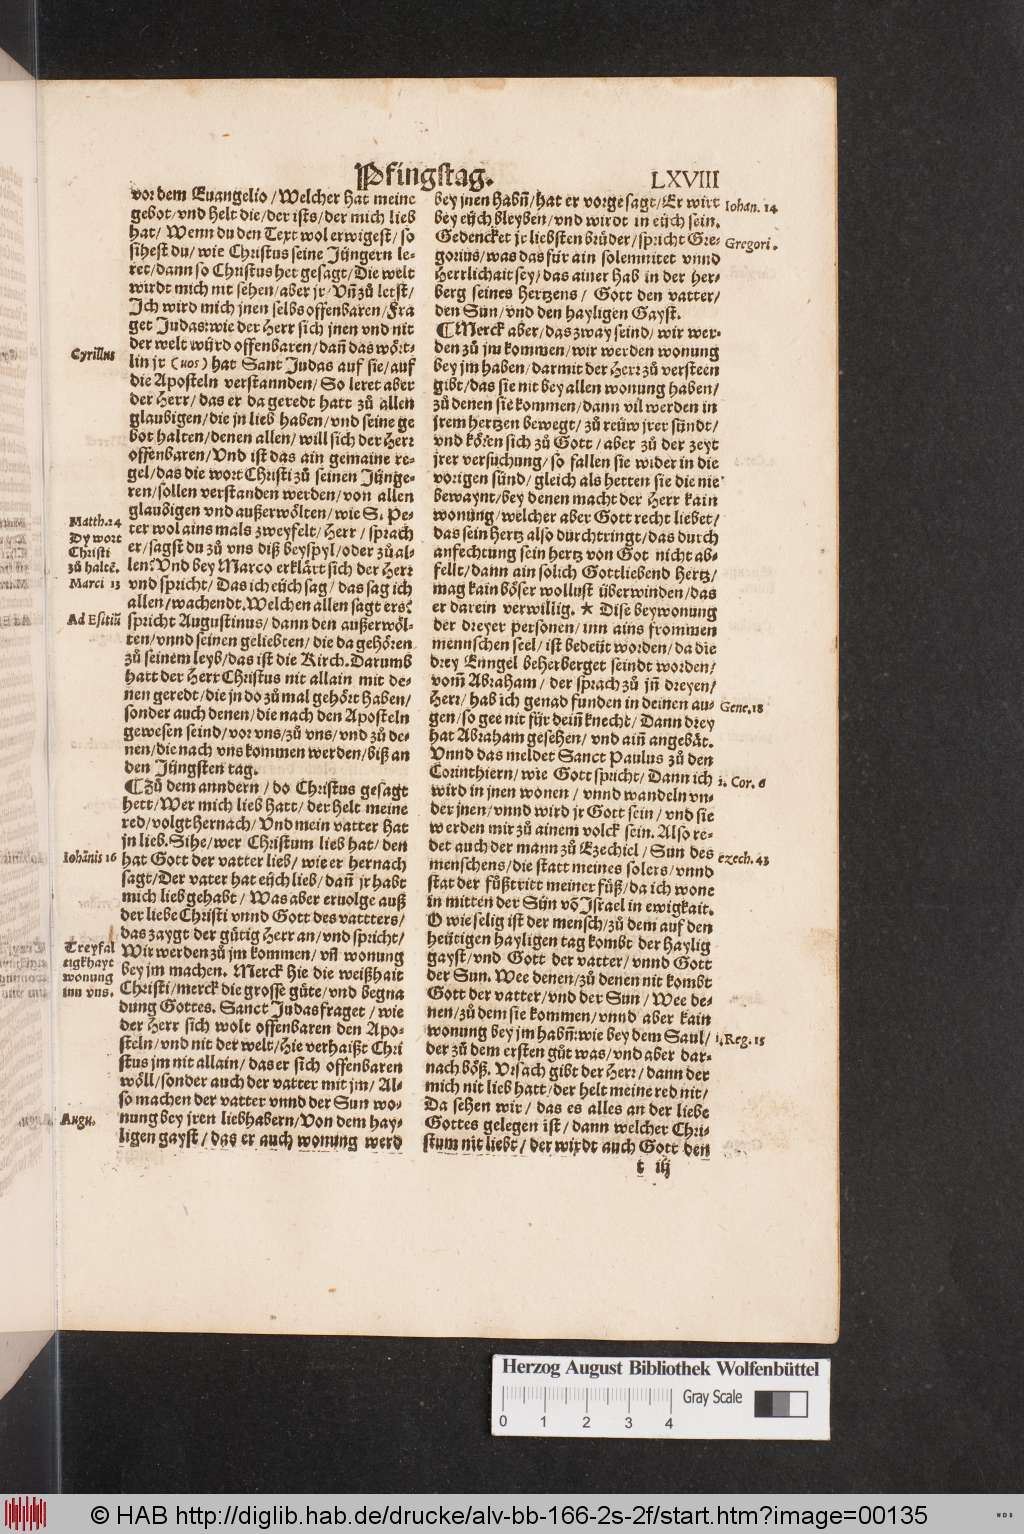 Pfingstag.
LXVIII
vor dem Euangelio / Welcher hat meine
gebot / vnd helt die / der ists / der mich lieb
hat / Wenn du den Text wol erwigest / so
sihest du / wie Christus seine Jüngern le-
ret / dann so Christus het gesagt / Die welt
wirdt mich nit sehen / aber jr / Vñ zů letst /
Ich wird mich jnen selbs offenbaren / Fra
get Judas: wie der Herr sich jnen vnd nit
der welt würd offenbaren / dañ das wört-
lin jr (uos) hat Sant Judas auf sie / auf
die Aposteln verstannden / So leret aber
der Herr / das er da geredt hatt zů allen
glaubigen / die jn lieb haben / vnd seine ge
bot halten / denen allen / will sich der Herr
offenbaren / Vnd ist das ain gemaine re-
gel / das die wort Christi zů seinen Jünge-
ren / sollen verstanden werden / von allen
glaubigen vnd außerwölten / wie S. Pe-
ter wol ains mals zweyfelt / Herr / sprach
er / sagst du zů vns diß beyspyl / oder zů al-
len? Vnd bey Marco erklärt sich der Herr
vnd spricht / Das ich eüch sag / das sag ich
allen / wachendt. Welchen allen sagt ers?
spricht Augustinus / dann den außerwöl-
ten / vnnd seinen geliebten / die da gehören
zů seinem leyb / das ist die Kirch. Darumb
hatt der Herr Christus nit allain mit de-
nen geredt / die jn do zů mal gehört haben /
sonder auch denen / die nach den Aposteln
gewesen seind / vor vns / zů vns / vnd zů de-
nen / die nach vns kommen werden / biß an
den Jüngsten tag.
¶ Zů dem anndern / do Christus gesagt
hett / Wer mich lieb hatt / der helt meine
red / volgt hernach / Vnd mein vatter hat
jn lieb. Sihe / wer Christum lieb hat / den
hat Gott der vatter lieb / wie er hernach
sagt / Der vater hat eüch lieb / dañ jr habt
mich lieb gehabt / Was aber eruolge auß
der liebe Christi vnnd Gott des vattters /
das zaygt der gütig Herr an / vnd spricht /
Wir werden zů jm kommen / vñ wonung
bey jm machen. Merck hie die weißhait
Christi / merck die grosse güte / vnd begna
dung Gottes. Sanct Judas fraget / wie
der Herr sich wolt offenbaren den Apo-
steln / vnd nit der welt / Hie verhaißt Chri
stus jm nit allain / das er sich offenbaren
wöll / sonder auch der vatter mit jm / Al-
so machen der vatter vnnd der Sun wo-
nung bey jren liebhabern / Von dem hay-
ligen gayst / das er auch wonung werd
Cyrillus
Matth. 24
Dy wort
Christi
zů haltẽ.
Marci 13
Ad Esitiũ
Iohānis 16
Treyfal
tigkhayt
wonung
inn vns.
Augu.
bey jnen habñ / hat er vorgesagt / Er wirt
bey eüch bleyben / vnd wirdt in eüch sein.
Gedencket jr liebsten brüder / spricht Gre-
gorius / was das für ain solemnitet vnnd
Herrlichait sey / das ainer hab in der her-
berg seines hertzens / Gott den vatter /
den Sun / vnd den hayligen Gayst.
¶ Merck aber / das zway seind / wir wer-
den zů jm kommen / wir werden wonung
bey jm haben / darmit der Herr zů versteen
gibt / das sie nit bey allen wonung haben /
zů denen sie kommen / dann vil werden in
jrem hertzen bewegt / zů reüw jrer sündt /
vnd kören sich zů Gott / aber zů der zeyt
jrer versuchung / so fallen sie wider in die
vorigen sünd / gleich als hetten sie die nie
bewaynt / bey denen macht der Herr kain
wonung / welcher aber Gott recht liebet /
das sein hertz also durchtringt / das durch
anfechtung sein hertz von Got nicht ab-
fellt / dann ain solich Gottliebend hertz /
mag kain böser wollust überwinden / das
er darein verwillig. ★ Dise beywonung
der dreyer personen / inn ains frommen
mennschen seel / ist bedeüt worden / da die
drey Enngel beherberget seindt worden /
vom̃ Abraham / der sprach zů jñ dreyen /
Herr / hab ich genad funden in deinen au-
gen / so gee nit für deiñ knecht / Dann drey
hat Abraham gesehen / vnd aiñ angebät.
Vnnd das meldet Sanct Paulus zů den
Corinthiern / wie Gott spricht / Dann ich
wird in jnen wonen / vnnd wandeln vn-
der jnen / vnnd wird jr Gott sein / vnd sie
werden mir zů ainem volck sein. Also re-
det auch der mann zů Ezechiel / Sun des
menschens / die statt meines solers / vnnd
stat der fůßtritt meiner fůß / da ich wone
in mitten der Sün võ Israel in ewigkait.
O wie selig ist der mensch / zů dem auf den
heütigen hayligen tag kombt der haylig
gayst / vnd Gott der vatter / vnnd Gott
der Sun. Wee denen / zů denen nit kombt
Gott der vatter / vnd der Sun / Wee de-
nen / zů dem sie kommen / vnnd aber kain
wonung bey jm habñ: wie bey dem Saul /
der zů dem ersten gůt was / vnd aber dar-
nach böß. Vrsach gibt der Herr / dann der
mich nit lieb hatt / der helt meine red nit /
Da sehen wir / das es alles an der liebe
Gottes gelegen ist / dann welcher Chri-
stum nit liebt / der wirdt auch Gott den
t iij
Iohan. 14
Gregori.
Gene. 18
2. Cor. 6
ezech. 43
1. Reg. 15
Herzog August Bibliothek Wolfenbüttel
0 1 2 3 4
Gray Scale
© HAB http://diglib.hab.de/drucke/alv-bb-166-2s-2f/start.htm?image=00135